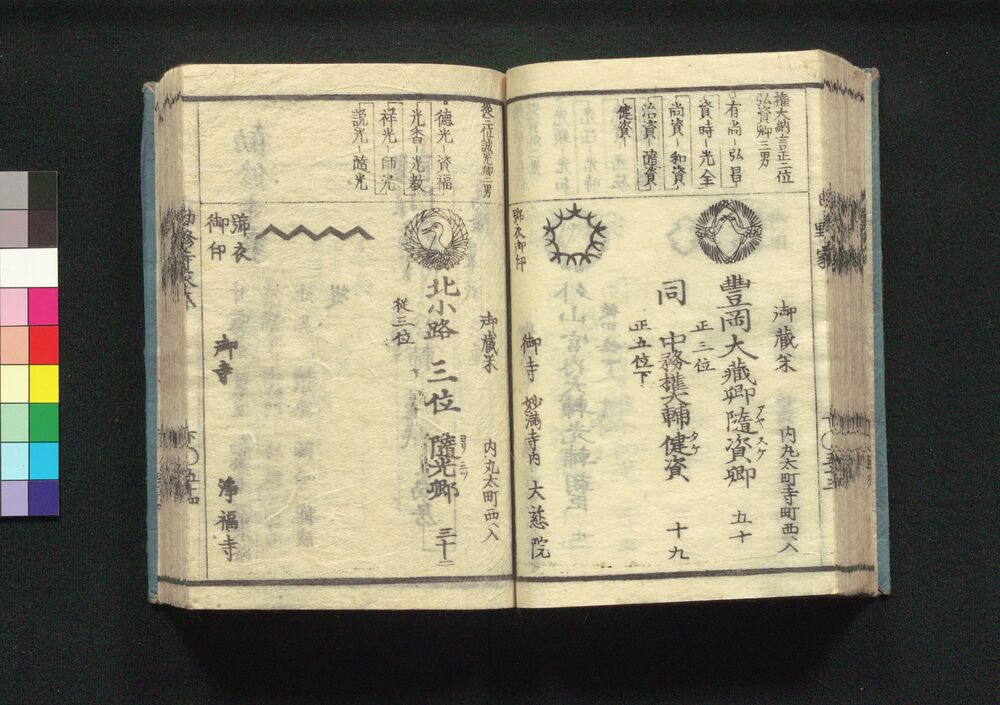 権大納言正二位
弘資卿三男
有尚-弘昌
資時-光全
尚資-和資
治資-随資
健資
御蔵米
内丸太町寺町西ヘ入
豊岡大蔵卿随資卿
アヤスケ
五十
正三位
同
中務権大輔健資
タケ
十九
正五位下
御寺 妙満寺内 大慈院
號衣御印
従三位誠光卿二男
徳光-資福
光香-光教
祥光-師光
説光-随光
御蔵米
内丸太町西ヘ入
北小路 三位 随光卿
ヨリミツ
三十二
従三位
號衣
御印
御寺
浄福寺